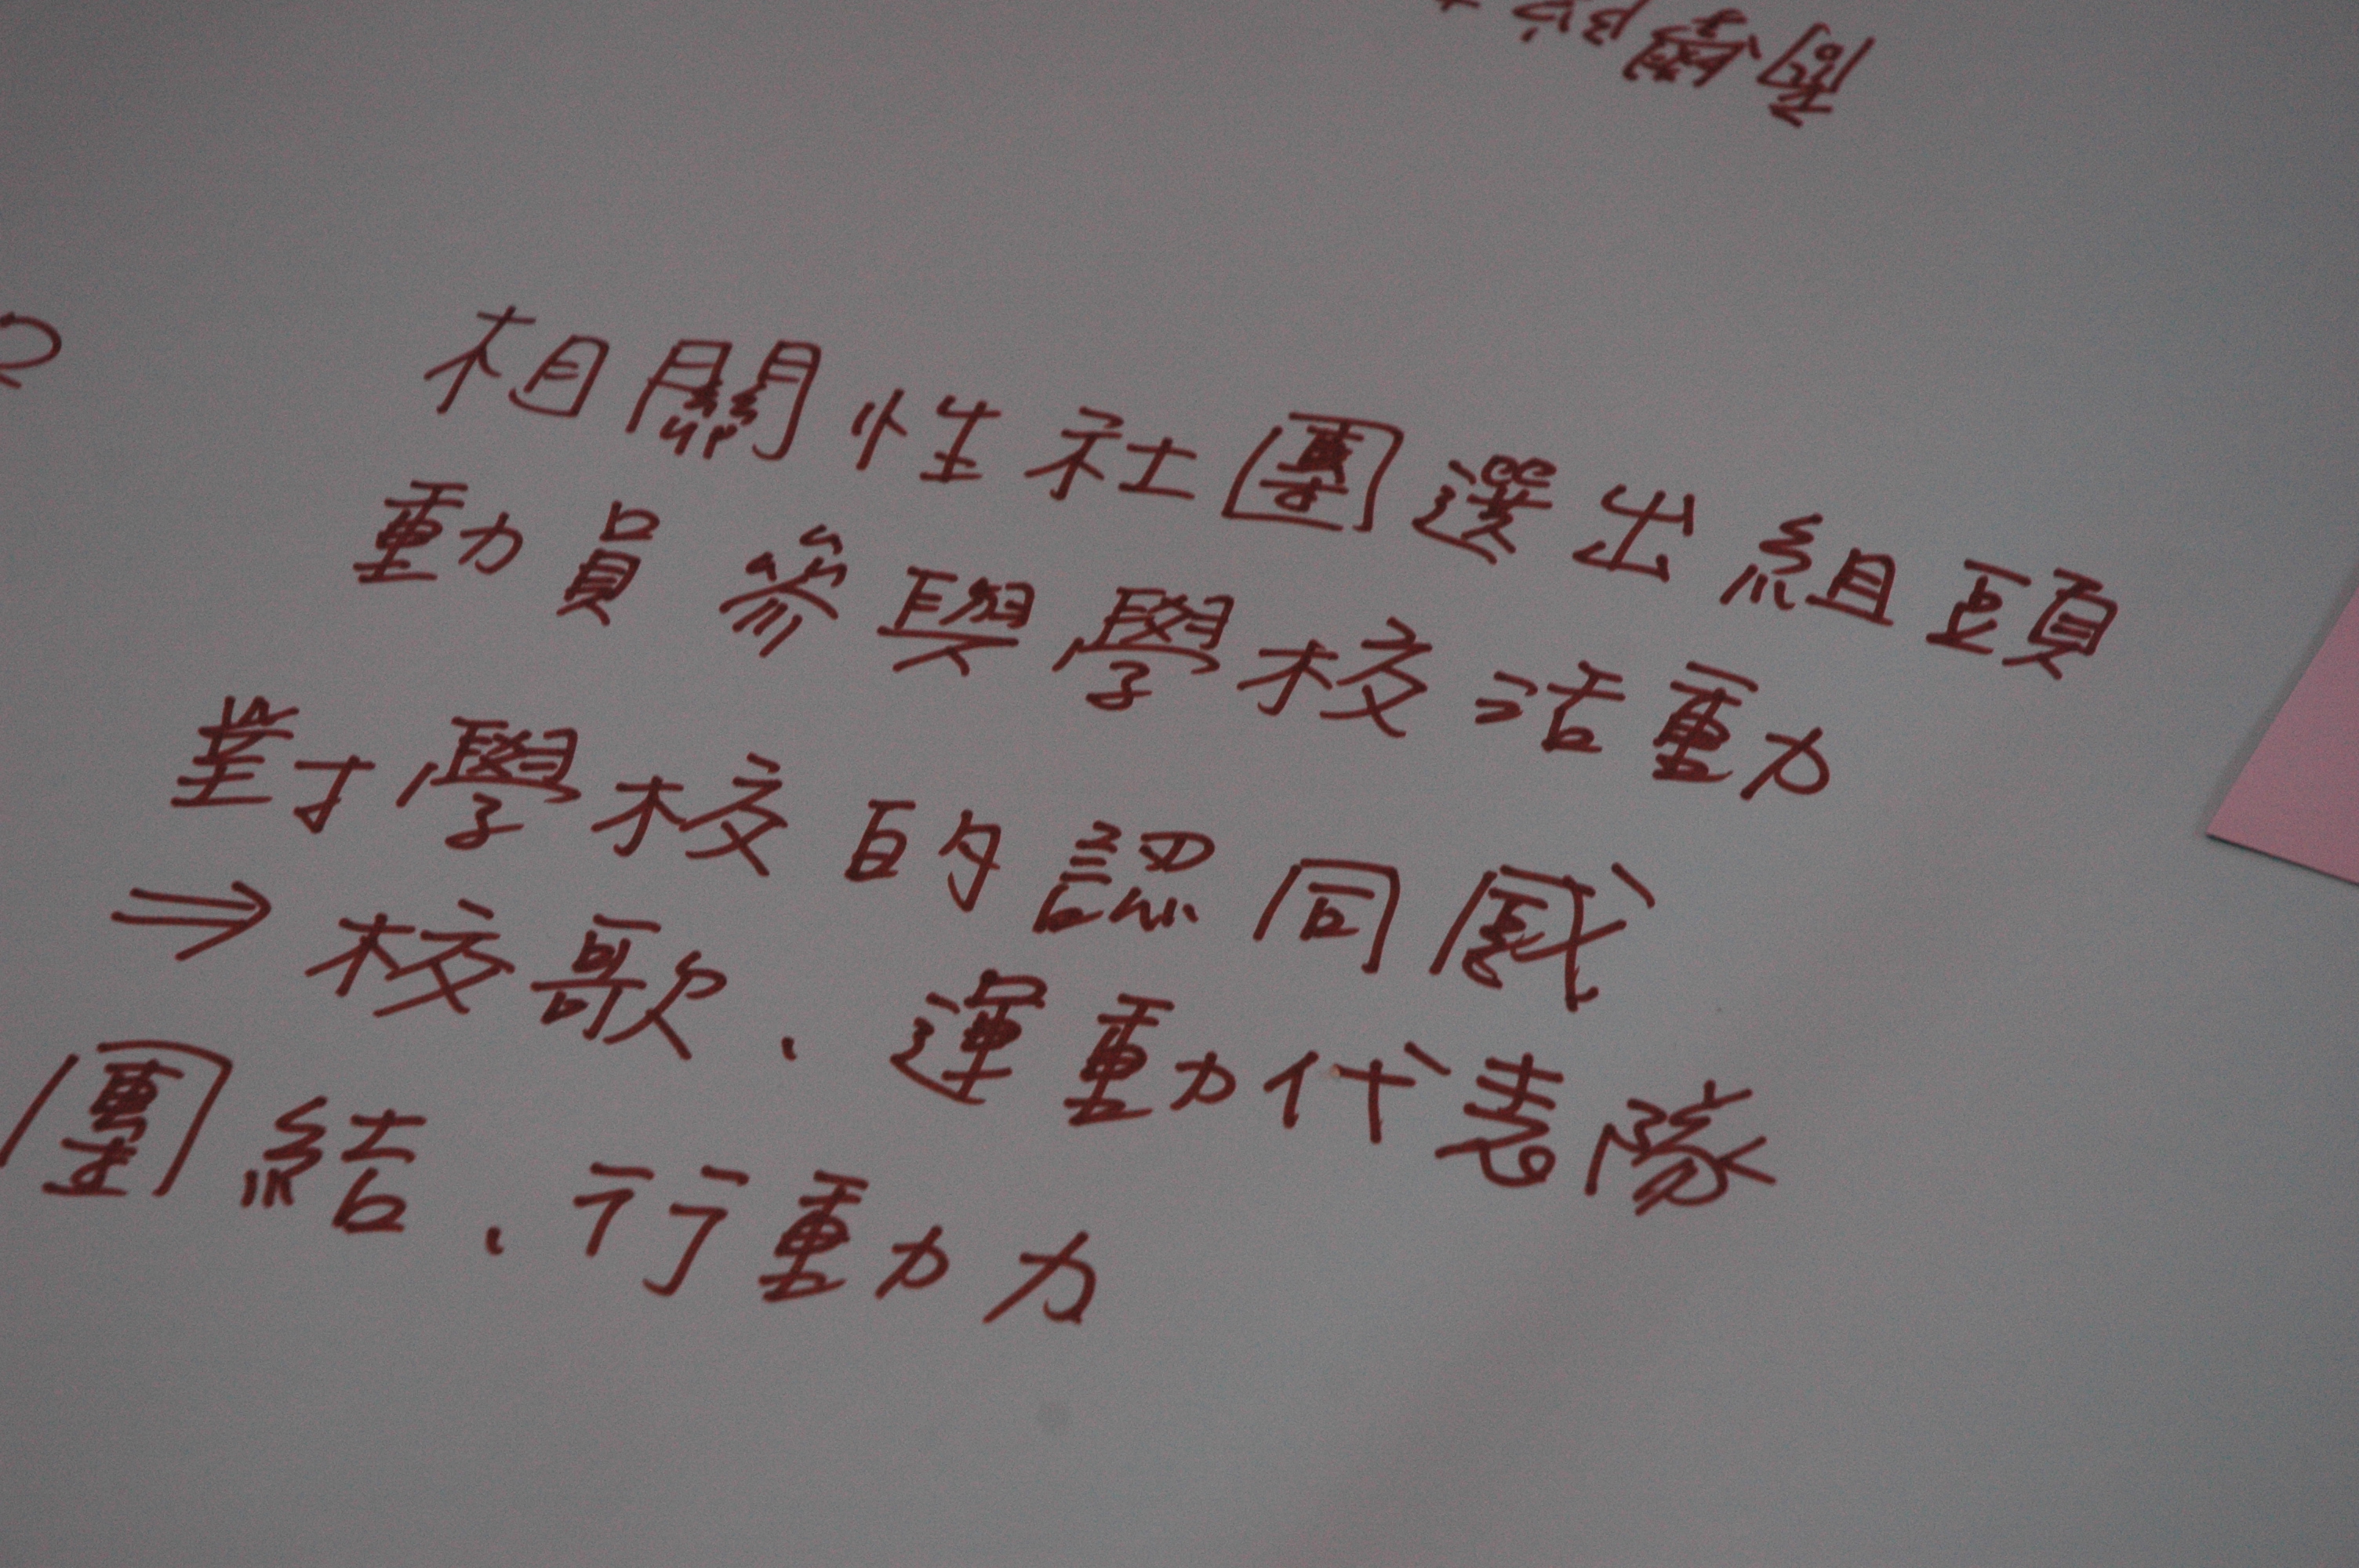 相關性社團選出組頭
動員參與學校活動
對學校的認同感
⇒校歌、運動代表隊
團結、行動力